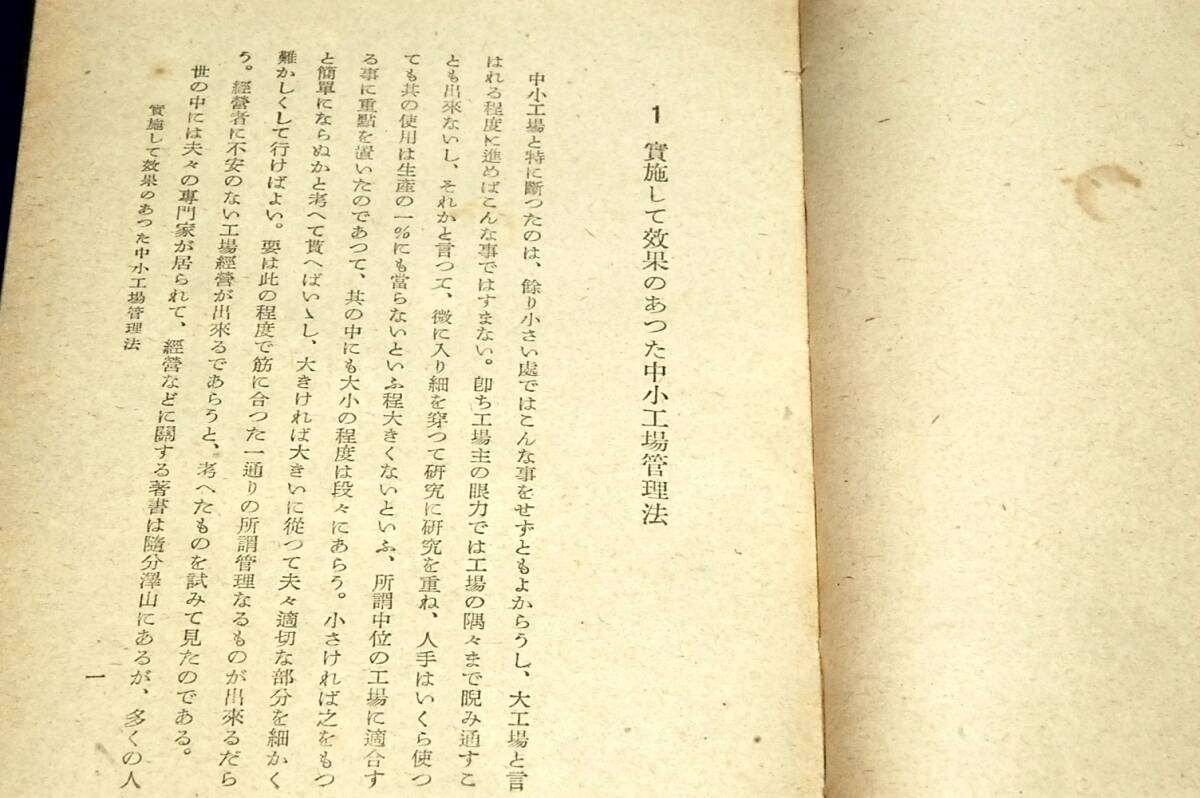 1 實施して效果のあつた中小工場管理法
中小工場と特に斷つたのは、餘り小さい處ではこんな事をせずともよからうし、大工場と言
はれる程度に進めばこんな事ではすまない。卽ち工場主の眼力では工場の隅々まで睨み通すこ
とも出來ないし、それかと言つて、微に入り細を穿つて硏究に硏究を重ね、人手はいくら使つ
ても其の使用は生産の一%にも當らないといふ程大きくないといふ、所謂中位の工場に適合す
る事に重點を置いたのであつて、其の中にも大小の程度は段々にあらう。小さければ之をもつ
と簡單にならぬかと考へて貰へばいゝし、大きければ大きいに從つて夫々適切な部分を細かく
難かしくして行けばよい。要は此の程度で筋に合つた一通りの所謂管理なるものが出來るだら
う。經營者に不安のない工場經營が出來るであらうと、考へたものを試みて見たのである。
世の中には夫々の專門家が居られて、經營などに關する著書は隨分澤山にあるが、多くの人
實施して效果のあつた中小工場管理法
一